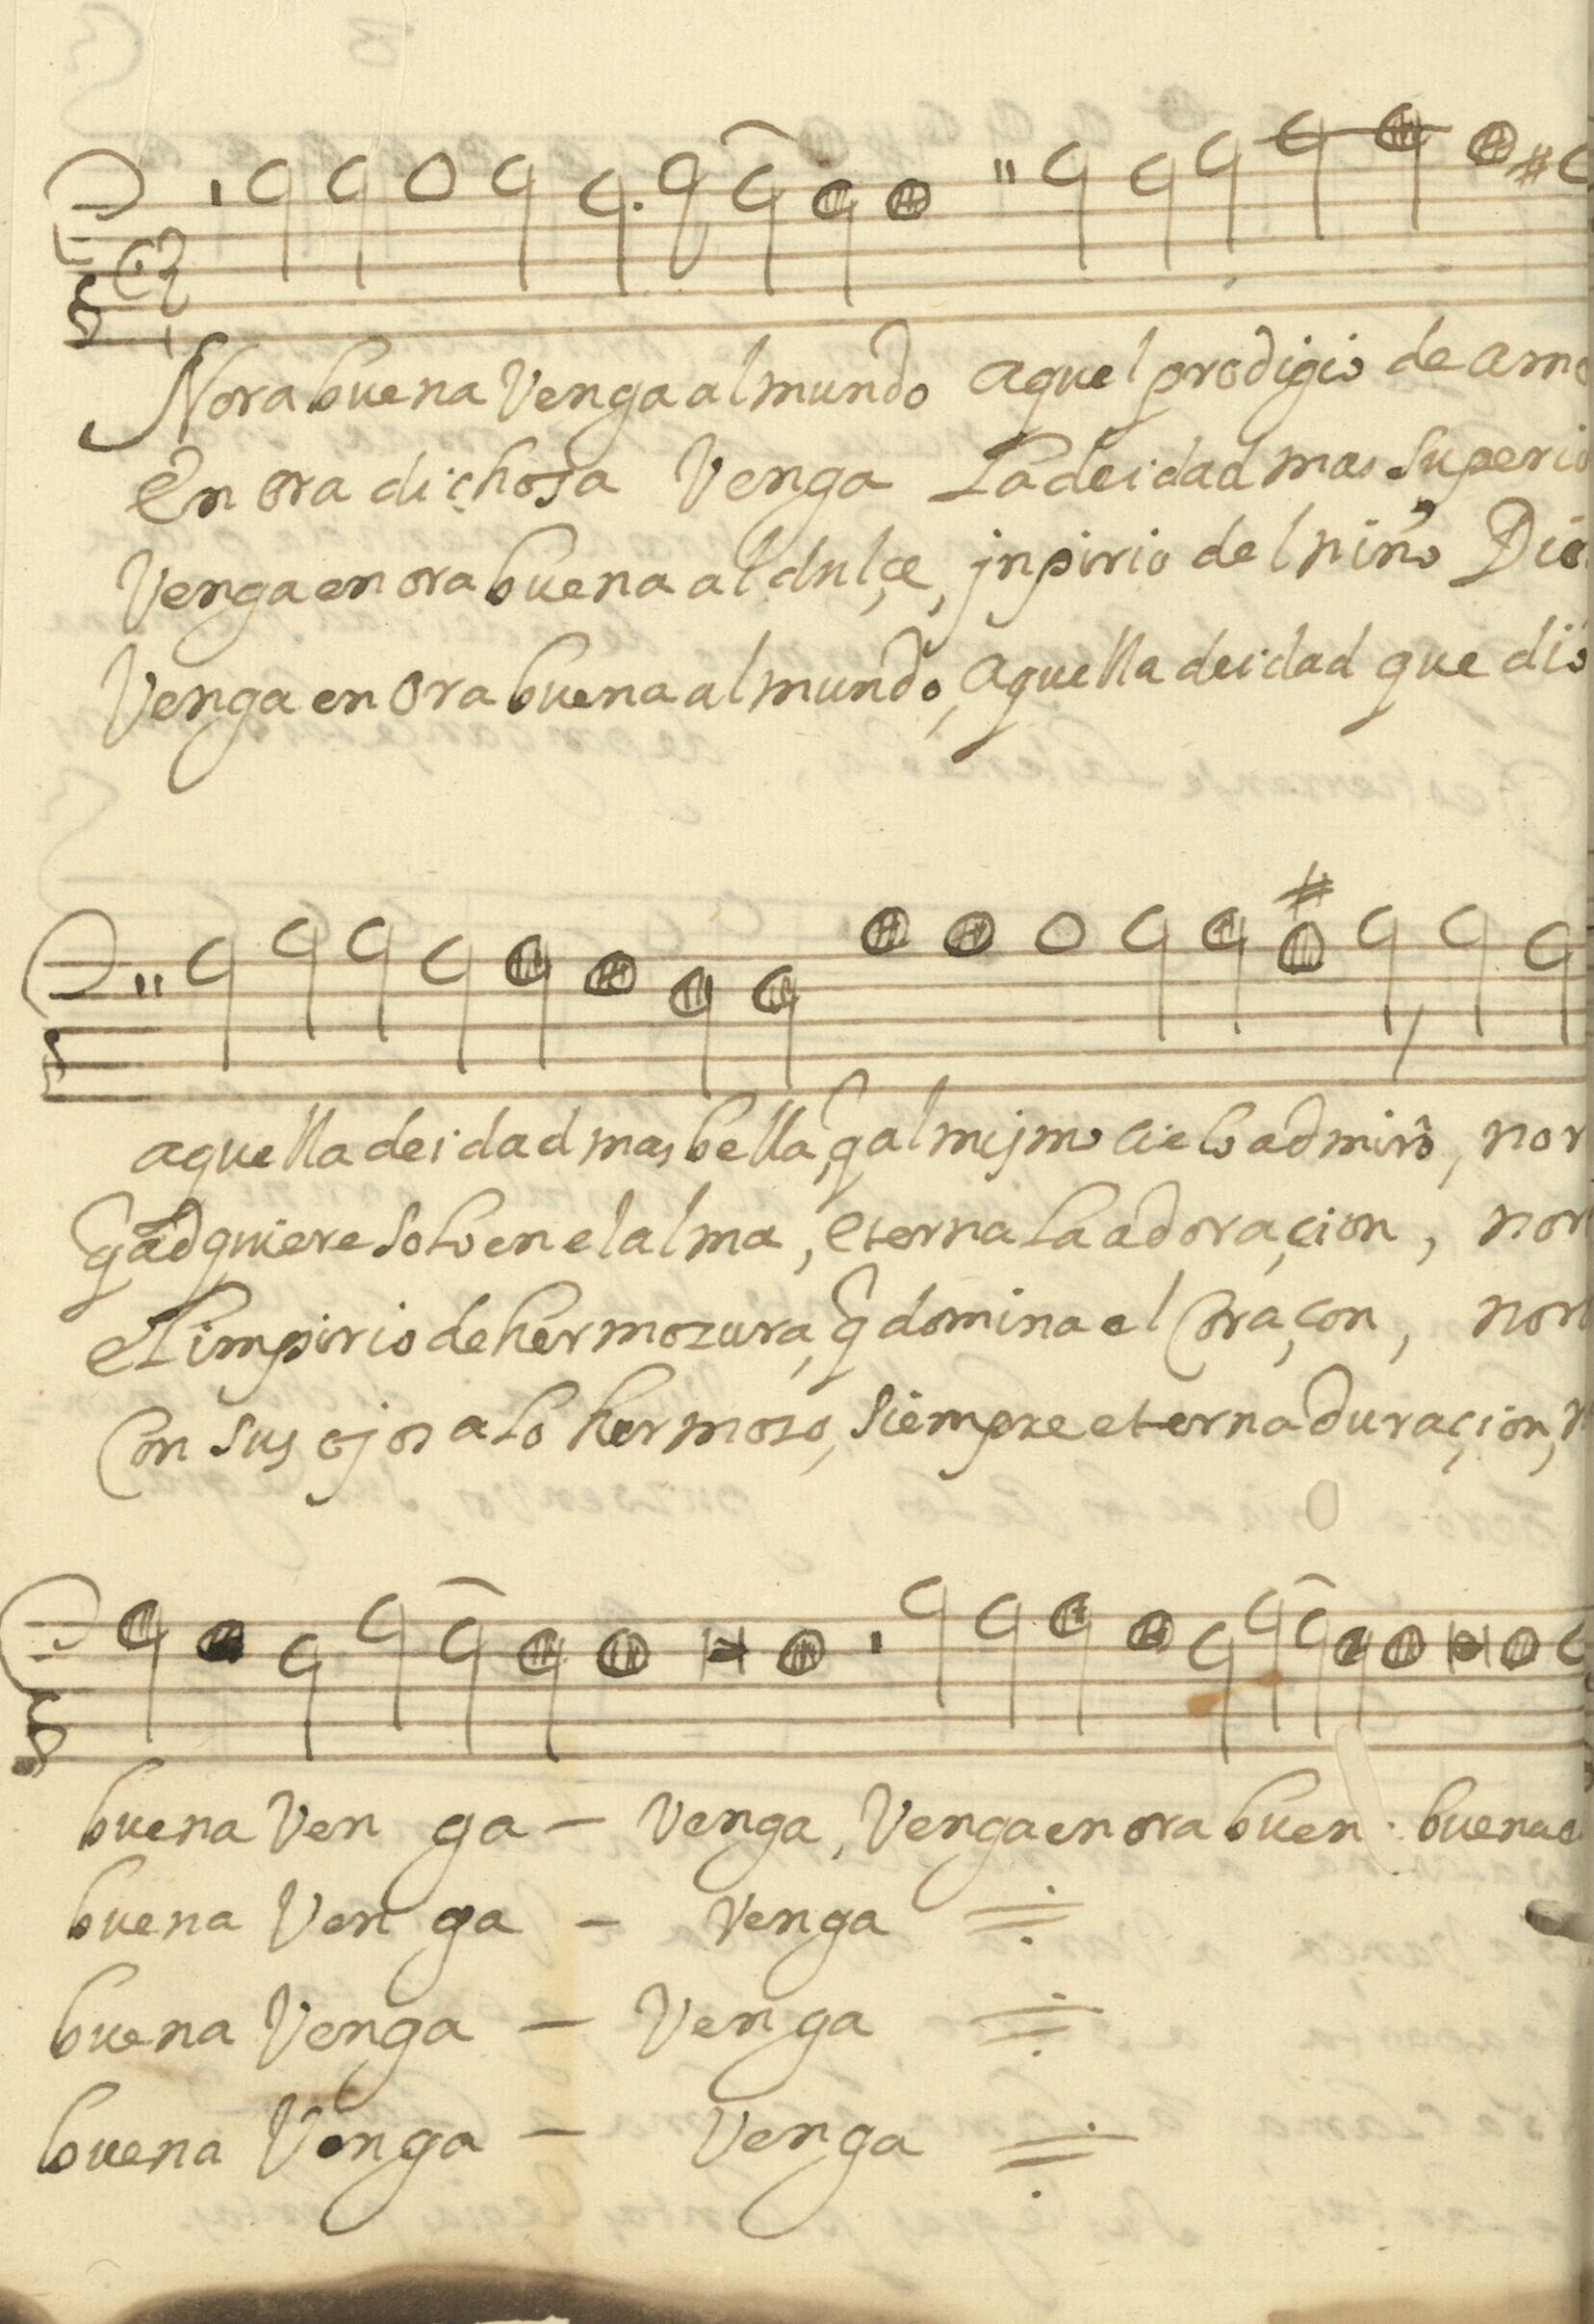 Norabuena Venga al mundo aquel prodigio de amo
En ora dichosa Venga La deidad mas Superio
Venga en ora buena al dulçe, jnpirio del niño Dio
Venga en Ora buena al mundo, aquella deidad que dio
aquella deidad mas bella, q al mismo cielo admirò, nor
q adquiere solo en el alma, eterna La adoraçion, nor
el impirio de hermozura, q domina el Coraçon, nor
Con sus ojos a Lo hermozo, siempre eterna duraçion, n
buena Ven ga — Venga, Venga en ora buen buena
buena Ven ga — Venga
buena Venga — Venga
buena Venga — Venga